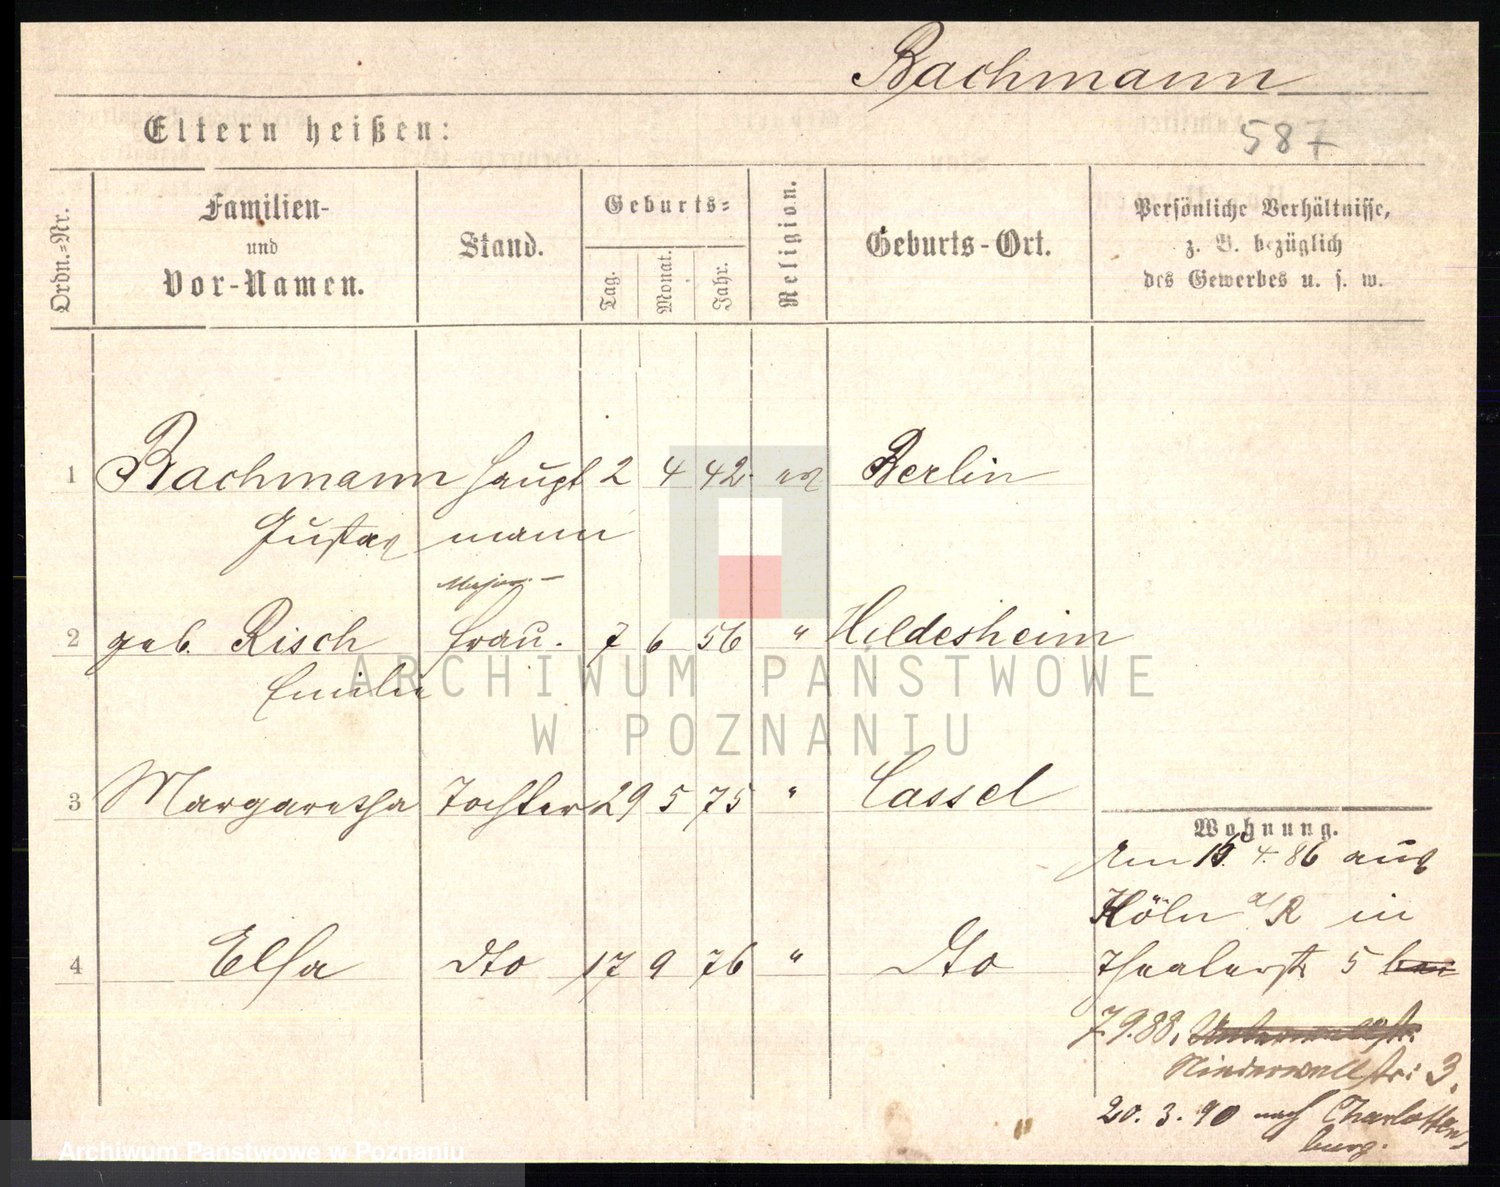 Bachmann
Eltern heißen:
587
Ordn.=Nr.
Familien-
und
Vor-Namen.
Stand.
Geburts=
Tag.
Monat.
Jahr.
Religion.
Geburts-Ort.
Persönliche Verhältnisse,
z. B. bezüglich
des Gewerbes u. s. w.
1 Bachmann Haupt 2 4 42. ev Berlin
Gustav mann
Major
2 geb. Risch Frau. 7 6 56 " Hildesheim
Emilie
3 Margaretha Tochter 29 5 75 " Cassel
Wohnung.
Am 15. 4. 86 aus
Köln a/R in
4 Elsa dto 17 9 76 " dto
Theaterstr 5 bei
7.9.88.
Niederwallstr: 3.
20.3.90 nach Charlotten
burg.
ARCHIWUM PAŃSTWOWE
W POZNANIU
Archiwum Państwowe w Poznaniu